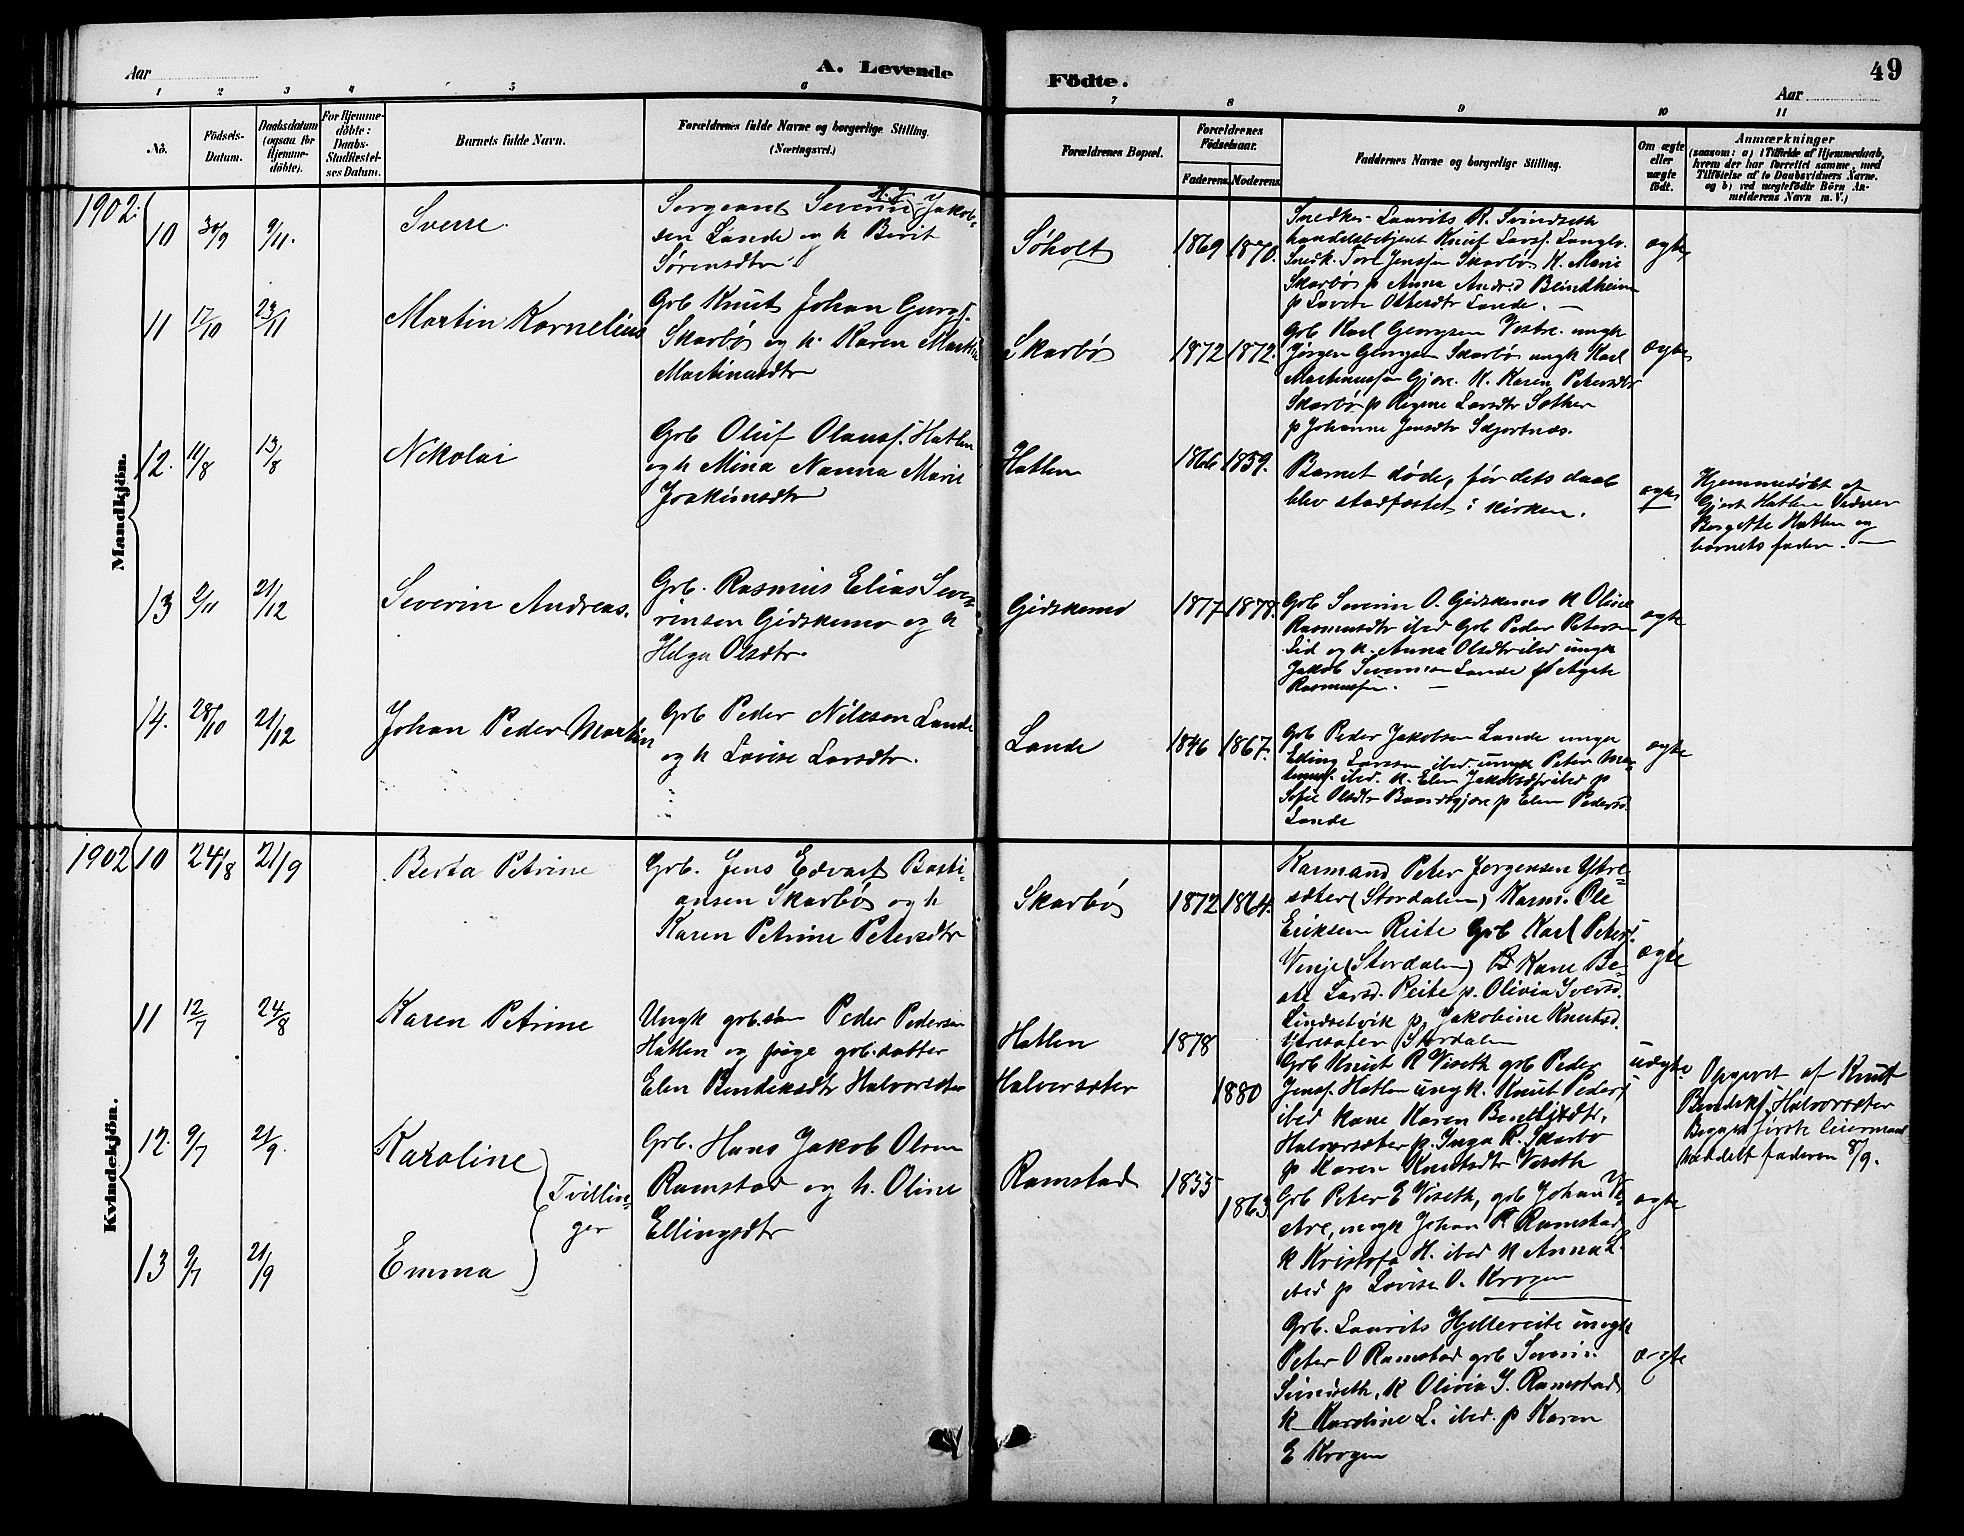 Aar
A. Levende
Födte.
49
Aar
1 2 3 4 5 6 7 8 9 10 11
No.
Födsels-
Datum.
Daabsdatum
(ogsaa for
Hjemme-
döbte).
For Hjemme-
döbte:
Daabs-
Stadfæstel-
ses Datum.
Barnets fulde Navn.
Forældrenes fulde Navne og borgerlige Stilling.
(Næringsvei.)
Forældrenes Bopæl.
Forældrenes
Födselsaar.
Faderens. Moderens.
Faddernes Navne og borgerlige Stilling.
Om ægte
eller
uægte
födt.
Anmærkninger
(saasom: a) i Tilfælde af Hjemmedaab,
hvem der har forrettet samme, med
Tilföielse af to Daabsvidners Navne.
og b) ved uægtefödte Börn An-
melderens Navn m.V.)
Mandkjön.
1902.
10 30/9 9/11. Sverre.
Sergeant Severin Jakob-
sen Lande og h Berit
Sörensdtr.
Söholt 1869 1870.
Snedker Laurits R. Svindseth
handelsbetjent Knut Larsf. Langlo.
Snedk. Tore Jensen Skarbø K. Marie
Skarbø p Anna Andrsd Blindheim
p Lovise Ottesdtr Lande. —
ægte
11 17/10 23/11 Martin Kornelius
Grb Knut Johan Georgs.
Skarbø og h. Karen Martha
Martinusdtr
Skarbø 1872 1872.
Grb Karl Georgsen Vestre. ungk
Jörgen Georgsen Skarbø ungk Karl
Martinussen Gjære. K. Karen Petersdtr
Skarbø p Regine Larsdtr Sæther
p Johanne Jensdtr Skjortnæs.
ægte
12. 11/8 13/8 Nikolai
Grb Oluf Olausf. Hatlen
og h Mina Nanna Marie
Joakimsdtr
Hatlen 1866 1859.
Barnet döde, för dets daab
blev stadfæstet i kirken.
ægte
Hjemmedøbt af
Gjert Hatlen Vidner
Bergitte Hatlen og
barnets fader. —
13 2/11 21/12 Severin Andreas.
Grb. Rasmus Elias Seve-
rinsen Gidskemo og h
Helga Olsdtr.
Gidskemo 1877 1878.
Grb Severin O. Gidskemo K Oline
Rasmusdtr ibid Grb Peder Petersen
Lid og k. Anna Olsdtr ibid ungk
Jakob Severinsen Lande p Agate
Rasmussen. —
ægte
14. 28/10 21/12 Johan Peder Martin
Grb Peder Nilssen Lande
og h Lovise Larsdtr.
Lande 1846 1867.
Grb Peder Jakobsen Lande ungk
Eding Larssen ibid. ungk Peter
ibid. K. Elen Jakobsdtr ibid p
Sofie Olsdtr p Elen Pedersd.
Lande
ægte
Kvindekjön.
1902
10 24/8 21/9 Berta Petrine
Grb. Jens Edvart Basti-
ansen Skarbø og h
Karen Petrine Petersdtr
Skarbø 1872 1864.
Kaarmand Peter Jørgensen Ytre-
sæter (Stordalen) Kaarm. Ole
Eriksen Reite Grb Karl Peters.
Vinje (Stordalen) Kone Be-
ate Larsd. Reite p. Olivia Iversd.
Lindsetvik p. Jakobine Knutsd.
Ytresæter Stordalen
ægte
11 12/7 24/8 Karen Petrine
Ungk grb. søn Peder Pedersen
Hatlen og pige grb. datter
Elen Bendiksdtr Halvorsæter
Hatlen 1878
Halvorsæter 1880
Grb Knut R Viseth grb Peder
Jensf. Hatlen ungk. Knut Peders
ibid kone Karen Bendiksdtr.
Halvorsæter p. Inga K. Skarbø
p Karen Knutsdtr Viseth
uægte
Opgivet af Knut
Bendiks. Halvorsæter
Begges første leiermaal
meddelt faderen 8/9.
12. 9/7 21/9. Karoline
Tvillin-
ger
Grb. Hans Jakob Olsen
Ramstad og h. Oline
Ellingsdtr
Ramstad 1855 1863
Grb Peter E Viseth, grb Johan
ungk Johan P. Ramstad
K Kristofa H. ibid K Anna L.
ibid p Lovise O. Krogen
ægte
13 9/7 21/9 Emma
Grb. Laurits Hjellereite ungk
Peter O Ramstad grb Severin
Svindseth, K Olivia J. Ramstad
K Karoline L. ibid. p Karen
E Krogen
ægte